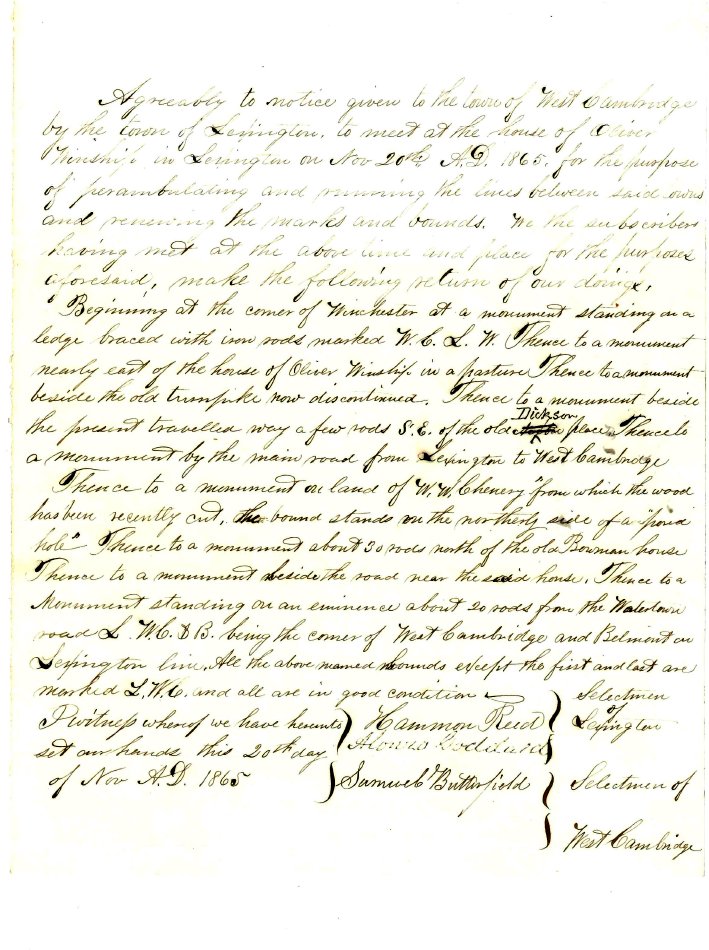 Agreeably to notice given to the town of West Cambridge
by the town of Lexington, to meet at the house of Oliver
Winship in Lexington on Nov 20th A.D. 1865, for the purpose
of perambulating and running the lines between said towns
and renewing the marks and bounds. We the subscribers
having met at the above time and place for the purposes
aforesaid, make the following return of our doings,
"Beginning at the corner of Winchester at a monument standing on a
ledge braced with iron rods marked W. C. L. W. Thence to a monument
nearly east of the house of Oliver Winship in a pasture Thence to a monument
beside the old turnpike now discontinued. Thence to a monument beside
Dickson
the present travelled way a few rods S. E. of the old place. Thence to
a monument by the main road from Lexington to West Cambridge
Thence to a monument on land of W. W. Chenery "from which the wood
has been recently cut, the bound stands on the northerly side of a "pond
hole" Thence to a monument about 30 rods north of the old Bowman house
Thence to a monument beside the road near the said house. Thence to a
Monument standing on an eminence about 20 rods from the Watertown
road L. W. C. & B. being the corner of West Cambridge and Belmont on
Lexington line. All the above named bounds except the first and last are
marked L. W. C. and all are in good condition
I witness whereof we have hereunto
set our hands this 20th day
of Nov A.D. 1865
Hammon Reed
Alonzo Goddard
Samuel Butterfield
Selectmen
of
Lexington
Selectmen of
West Cambridge